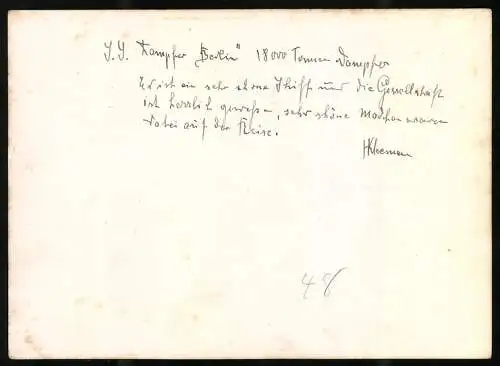 I. I. Dampfer "Berlin" 18000 Tonnen Dampfer
Es ist ein sehr schönes Schiff und die Gesellschaft
ist herrlich gewesen, sehr schöne Mädchen waren
dabei auf der Reise.
48